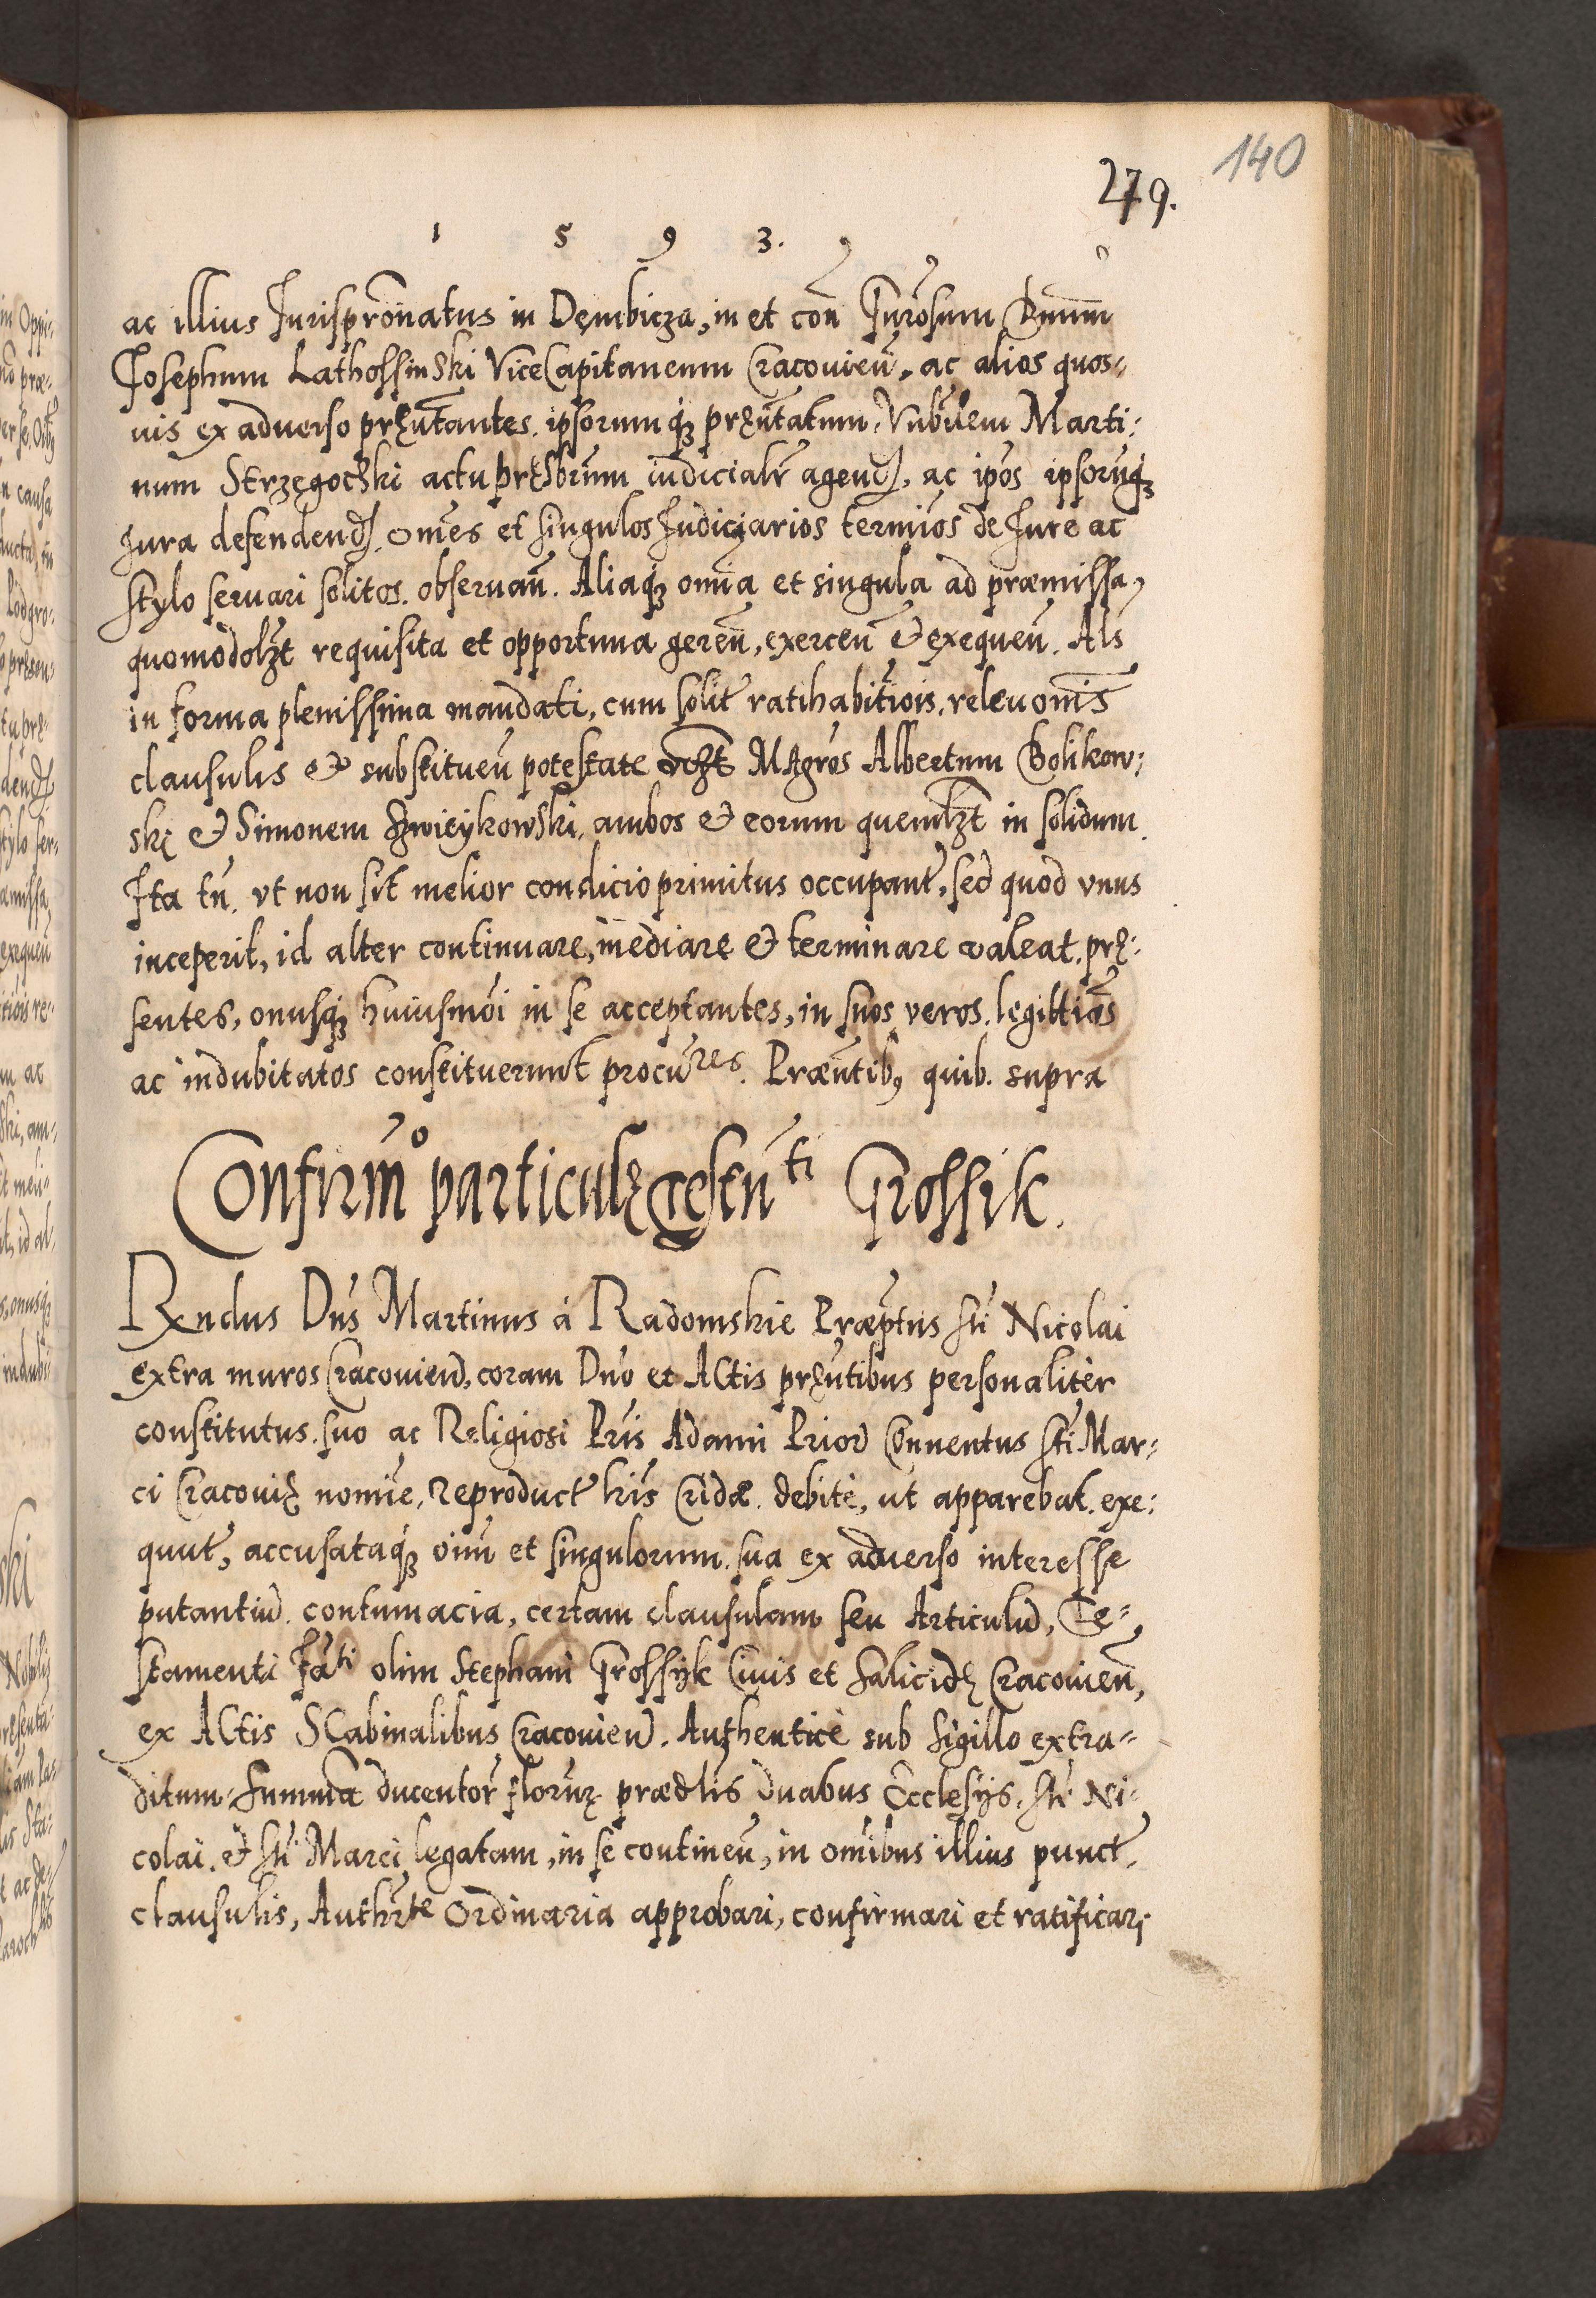 140
279.
1 5 9 3.
ac illius Jurisprōnatus in Dęmbicza, in et con̄ Gn̄rosum Dnum
Josephum Lathossinski ViceCapitaneum Cracouien̄, ac alios quos-
uis ex aduerso pręn̄tantes. ipsorumq₃ pręn̄tatum, Vnb̄ilem Marti-
num Strzęgoczki actu pręsb̄rum iudicialr̄ agend̄, ac ip̄os ipsorūq₃
Jura defendend̄. om̄es et singulos Judiciarios termīos de Jure ac
stylo seruari solitos. obseruan̄. Aliaq₃ om̄ia et singula ad præmissa,
quomodolȝt requisita et opportuna geren̄, exercen̄ & exequen̄. Als
in forma plenissima mandati, cum solit̄ ratihabit̄iois, releuon̄is
clausulis & substituen̄ potestate MAgrōs Albertum Bolikow-
skę & Simonem Szwieykowski, ambos & eorum quemlȝt in solidum.
Ita tn̄. vt non sit melior condicio primitus occupant̄, sed quod vnus
inceperit, id alter continuare, mediare & terminare valeat. prę-
sentes, onusq₃ huiusmōi in se acceptantes, in suos veros. legittiōs
ac indubitatos constituerunt procūres. Præn̄tib₉ quib. supra
Confirm̄o particulę testn̄ti Grossik.
Rxndus Dn̄s Martinus á Radomskie Præp̄tus sti Nicolai
extra muros Cracouien̄, coram Dn̄o et Actis pręn̄tibus personalitèr
constitutus. suo ac Religiosi Pr̄is Adami Prior̄ Cōnuentus Sti Mar-
ci Cracouię nomīe, Reproduct̄ hīs Crīdæ. debitè, ut apparebat. exe-
quut̄, accusataq₃ oīm̄ et singulorum. sua ex aduerso interesse
putantiū. contumacia, certam clausulam seu Articulū, Te-
stamenti Fāti olim Stephani Grossyk Ciuis et Salicidę Cracouien̄,
ex Actis SCabinalibus Cracouien̄. Authenticè sub Sigillo extra-
ditum. Summā ducentor̄ florūz. prædtis duabus Ecclesijs. Sti Ni-
colai. & sti Marci legatam, in se continen̄, in om̄ibus illius punct̄,
clausulis, Authr̄te Ordinaria approbari, confirmari et ratificari